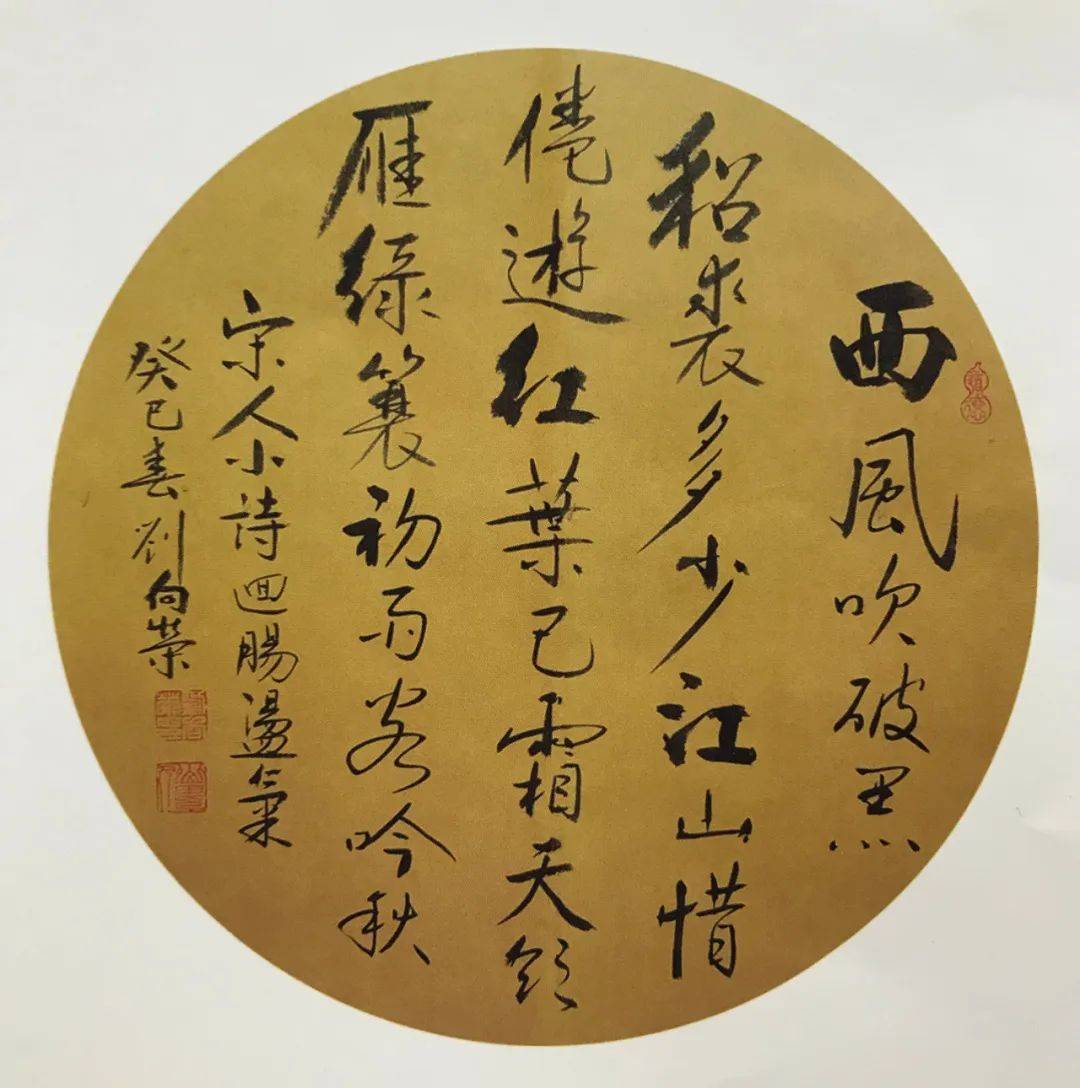 西風吹破黑
貂裘多少江山惜
倦遊紅葉已霜天欲
雁綠簑初雨客吟秋
宋人小詩迴腸盪氣
癸巳春劉向榮